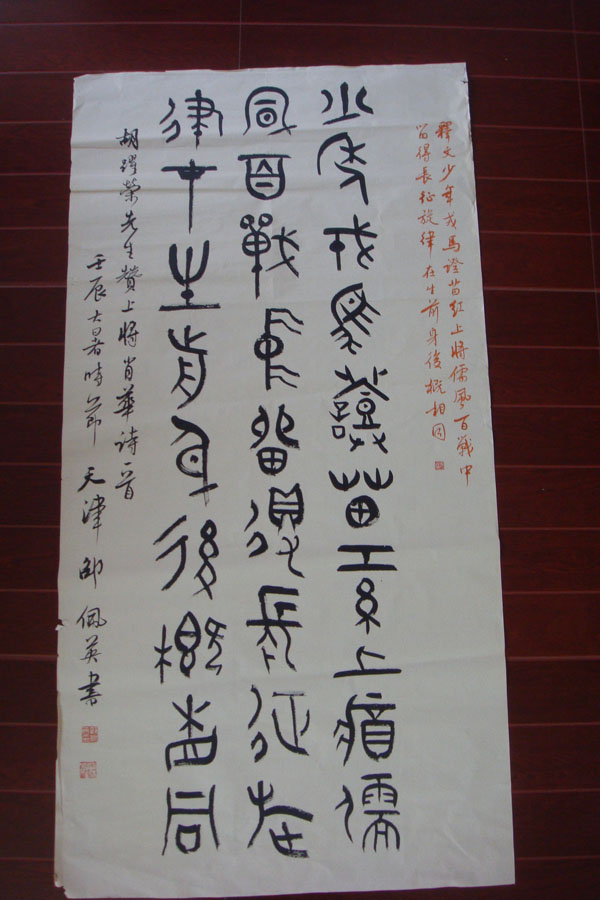 釋文少年戎馬證苗紅上將儒風百戰中
留得長征旋律在生前身後概相同
少年戎馬證苗紅上將儒
風百戰留得長征在
律中生前身後概相同
胡躍榮先生贊上將肖華詩一首
壬辰大暑時節 天津 邵佩英書